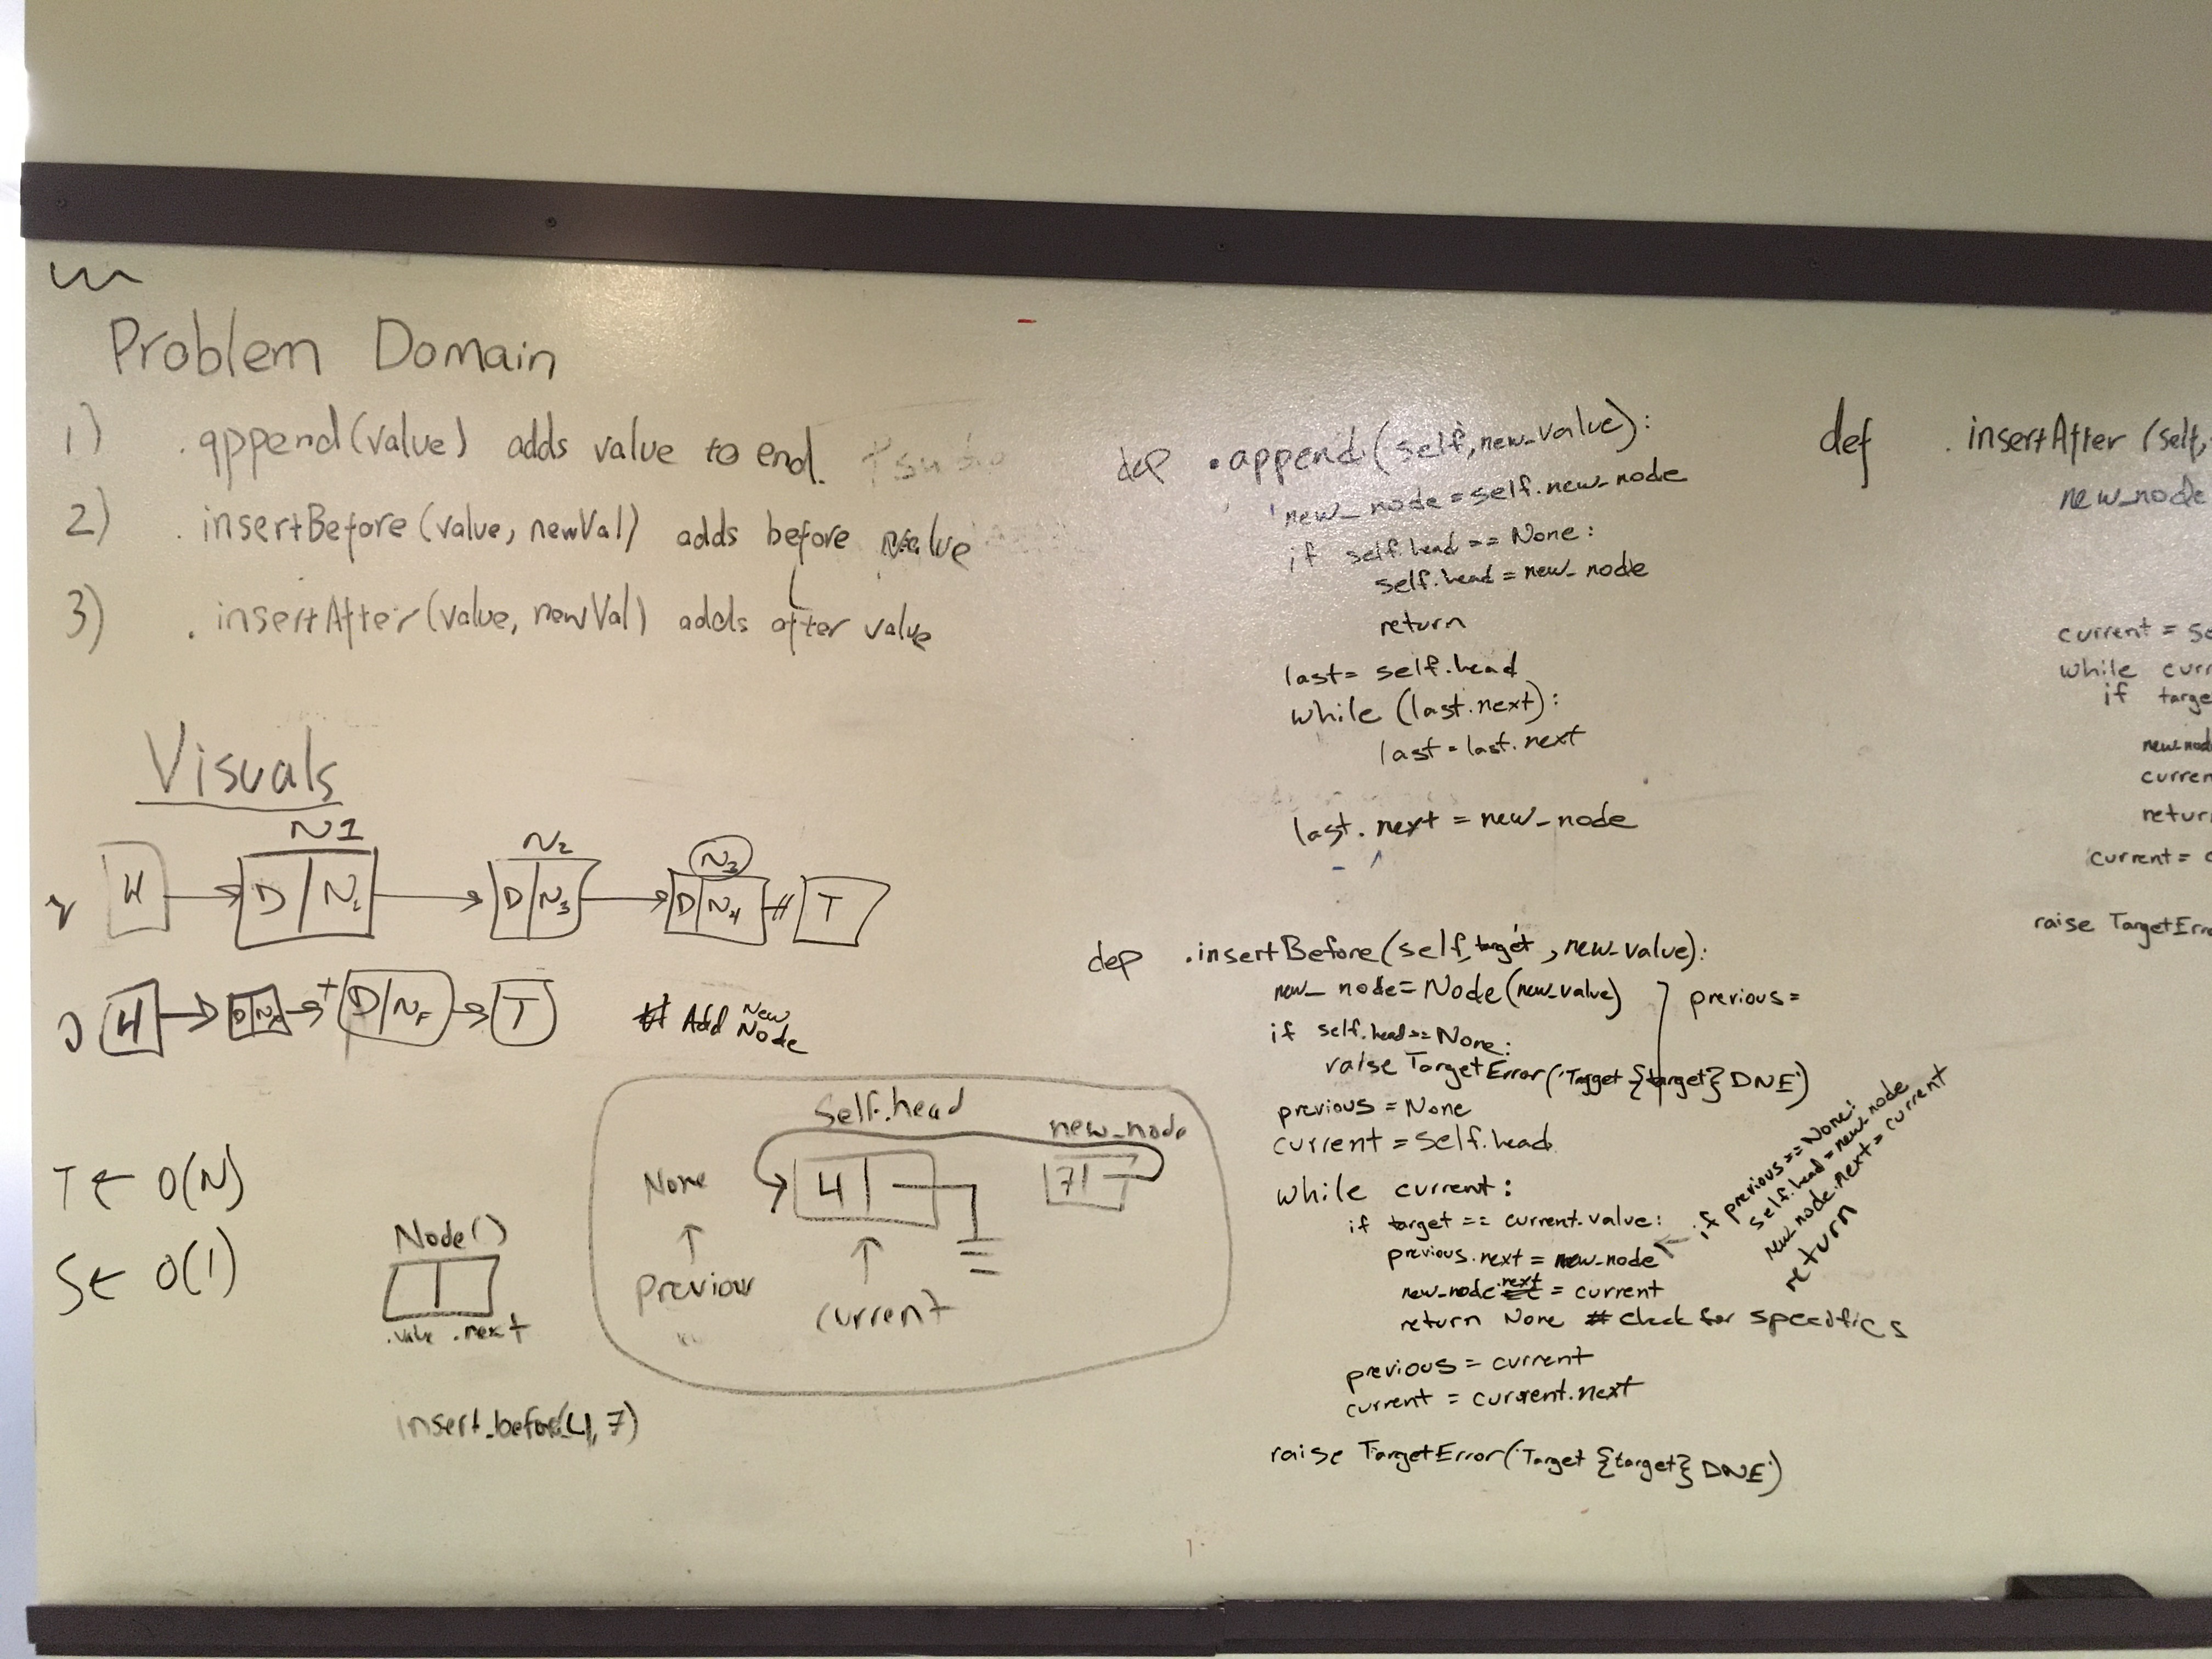 Problem Domain
1) .append(value) adds value to end.
2) .insertBefore(value, newVal) adds before value
3) .insertAfter(value, newVal) adds after value
Visuals
N1 N2 N3
H D N2 D N3 D N4 T
H D D NF T
# Add New Node
T ← O(N)
S ← O(1)
Node()
.value .next
self.head
new_node
None 4 7
previous
current
insert_before(4, 7)
def .append(self, new_value):
new_node = self.new_node
if self.head == None:
self.head = new_node
return
last = self.head
while (last.next):
last = last.next
last.next = new_node
def .insertBefore(self, target, new_value):
new_node = Node(new_value) previous =
if self.head == None:
raise TargetError('Target {target} DNE')
previous = None
current = self.head
while current:
if target == current.value:
previous.next = new_node
new_node.next = current
return None # check for specifics
previous = current
current = current.next
raise TargetError('Target {target} DNE')
if previous == None:
self.head = new_node
new_node.next = current
return
def .insertAfter (self,
new_node
current = se
while curr
if targe
new_nod
curren
retur
current = c
raise TargetErr